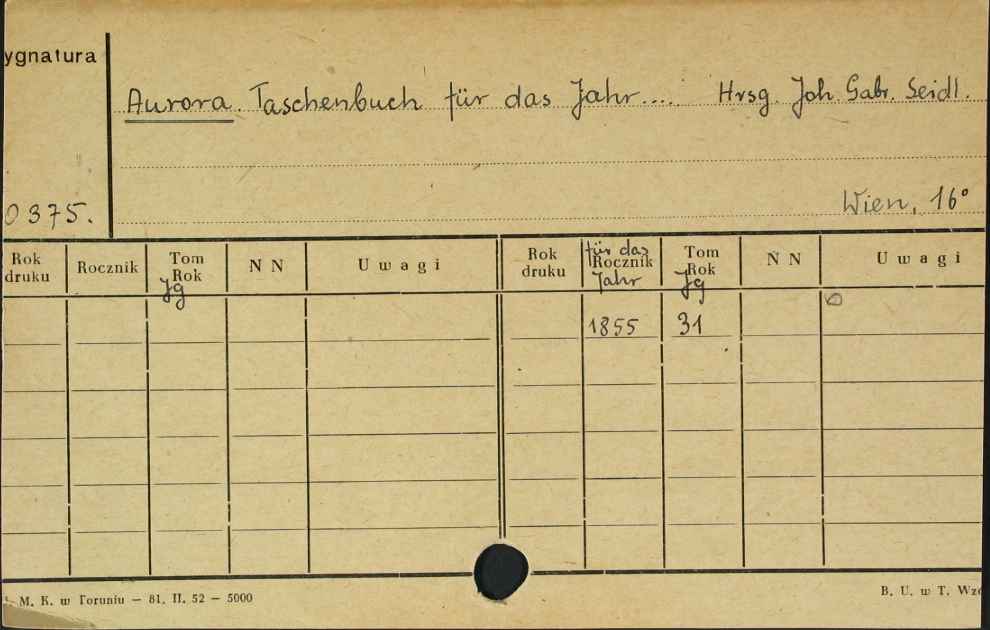 ygnatura
Aurora. Taschenbuch für das Jahr.... Hrsg. Joh. Gabr. Seidl.
0375.
Wien, 16°
Rok druku Rocznik Tom Rok Jg N N Uwagi Rok druku für das Rocznik Jahr Tom Rok Jg N N Uwagi
1855 31
M. K. w Toruniu — 81. II. 52 — 5000
B. U. w T. Wzó